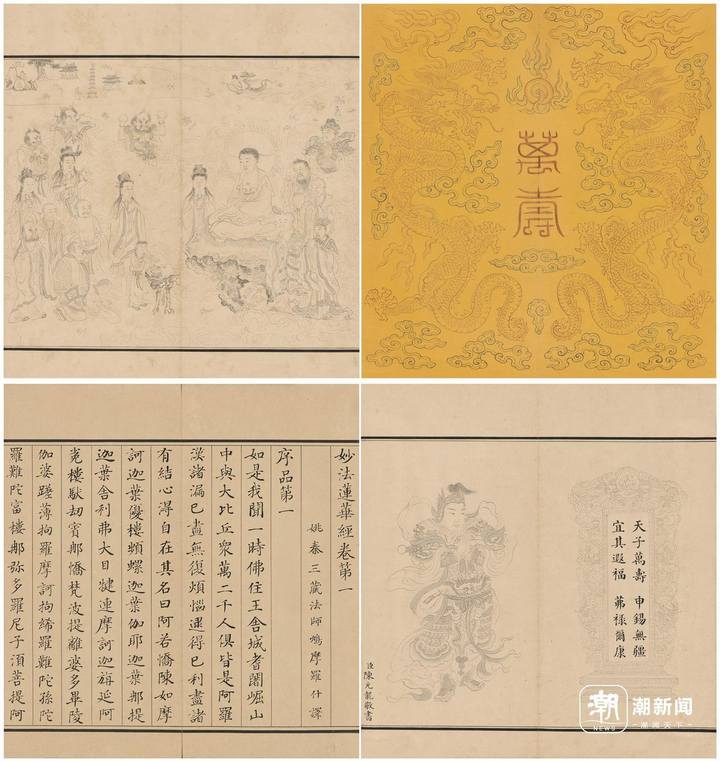 萬壽
妙法蓮華經卷第一
姚秦三藏法師鳩摩羅什譯
序品第一
如是我聞一時佛住王舍城耆闍崛山
中與大比丘衆萬二千人俱皆是阿羅
漢諸漏已盡無復煩惱逮得己利盡諸
有結心得自在其名曰阿若憍陳如摩
訶迦葉優樓頻螺迦葉伽耶迦葉那提
迦葉舍利弗大目犍連摩訶迦旃延阿
㝹樓馱劫賓那憍梵波提離婆多畢陵
伽婆蹉薄拘羅摩訶拘絺羅難陀孫陀
羅難陀富樓那弥多羅尼子須菩提阿
天子萬壽 申錫無疆
宜其遐福 茀祿爾康
臣陳元龍敬書
潮
NEWS
潮新闻
潮闻天下